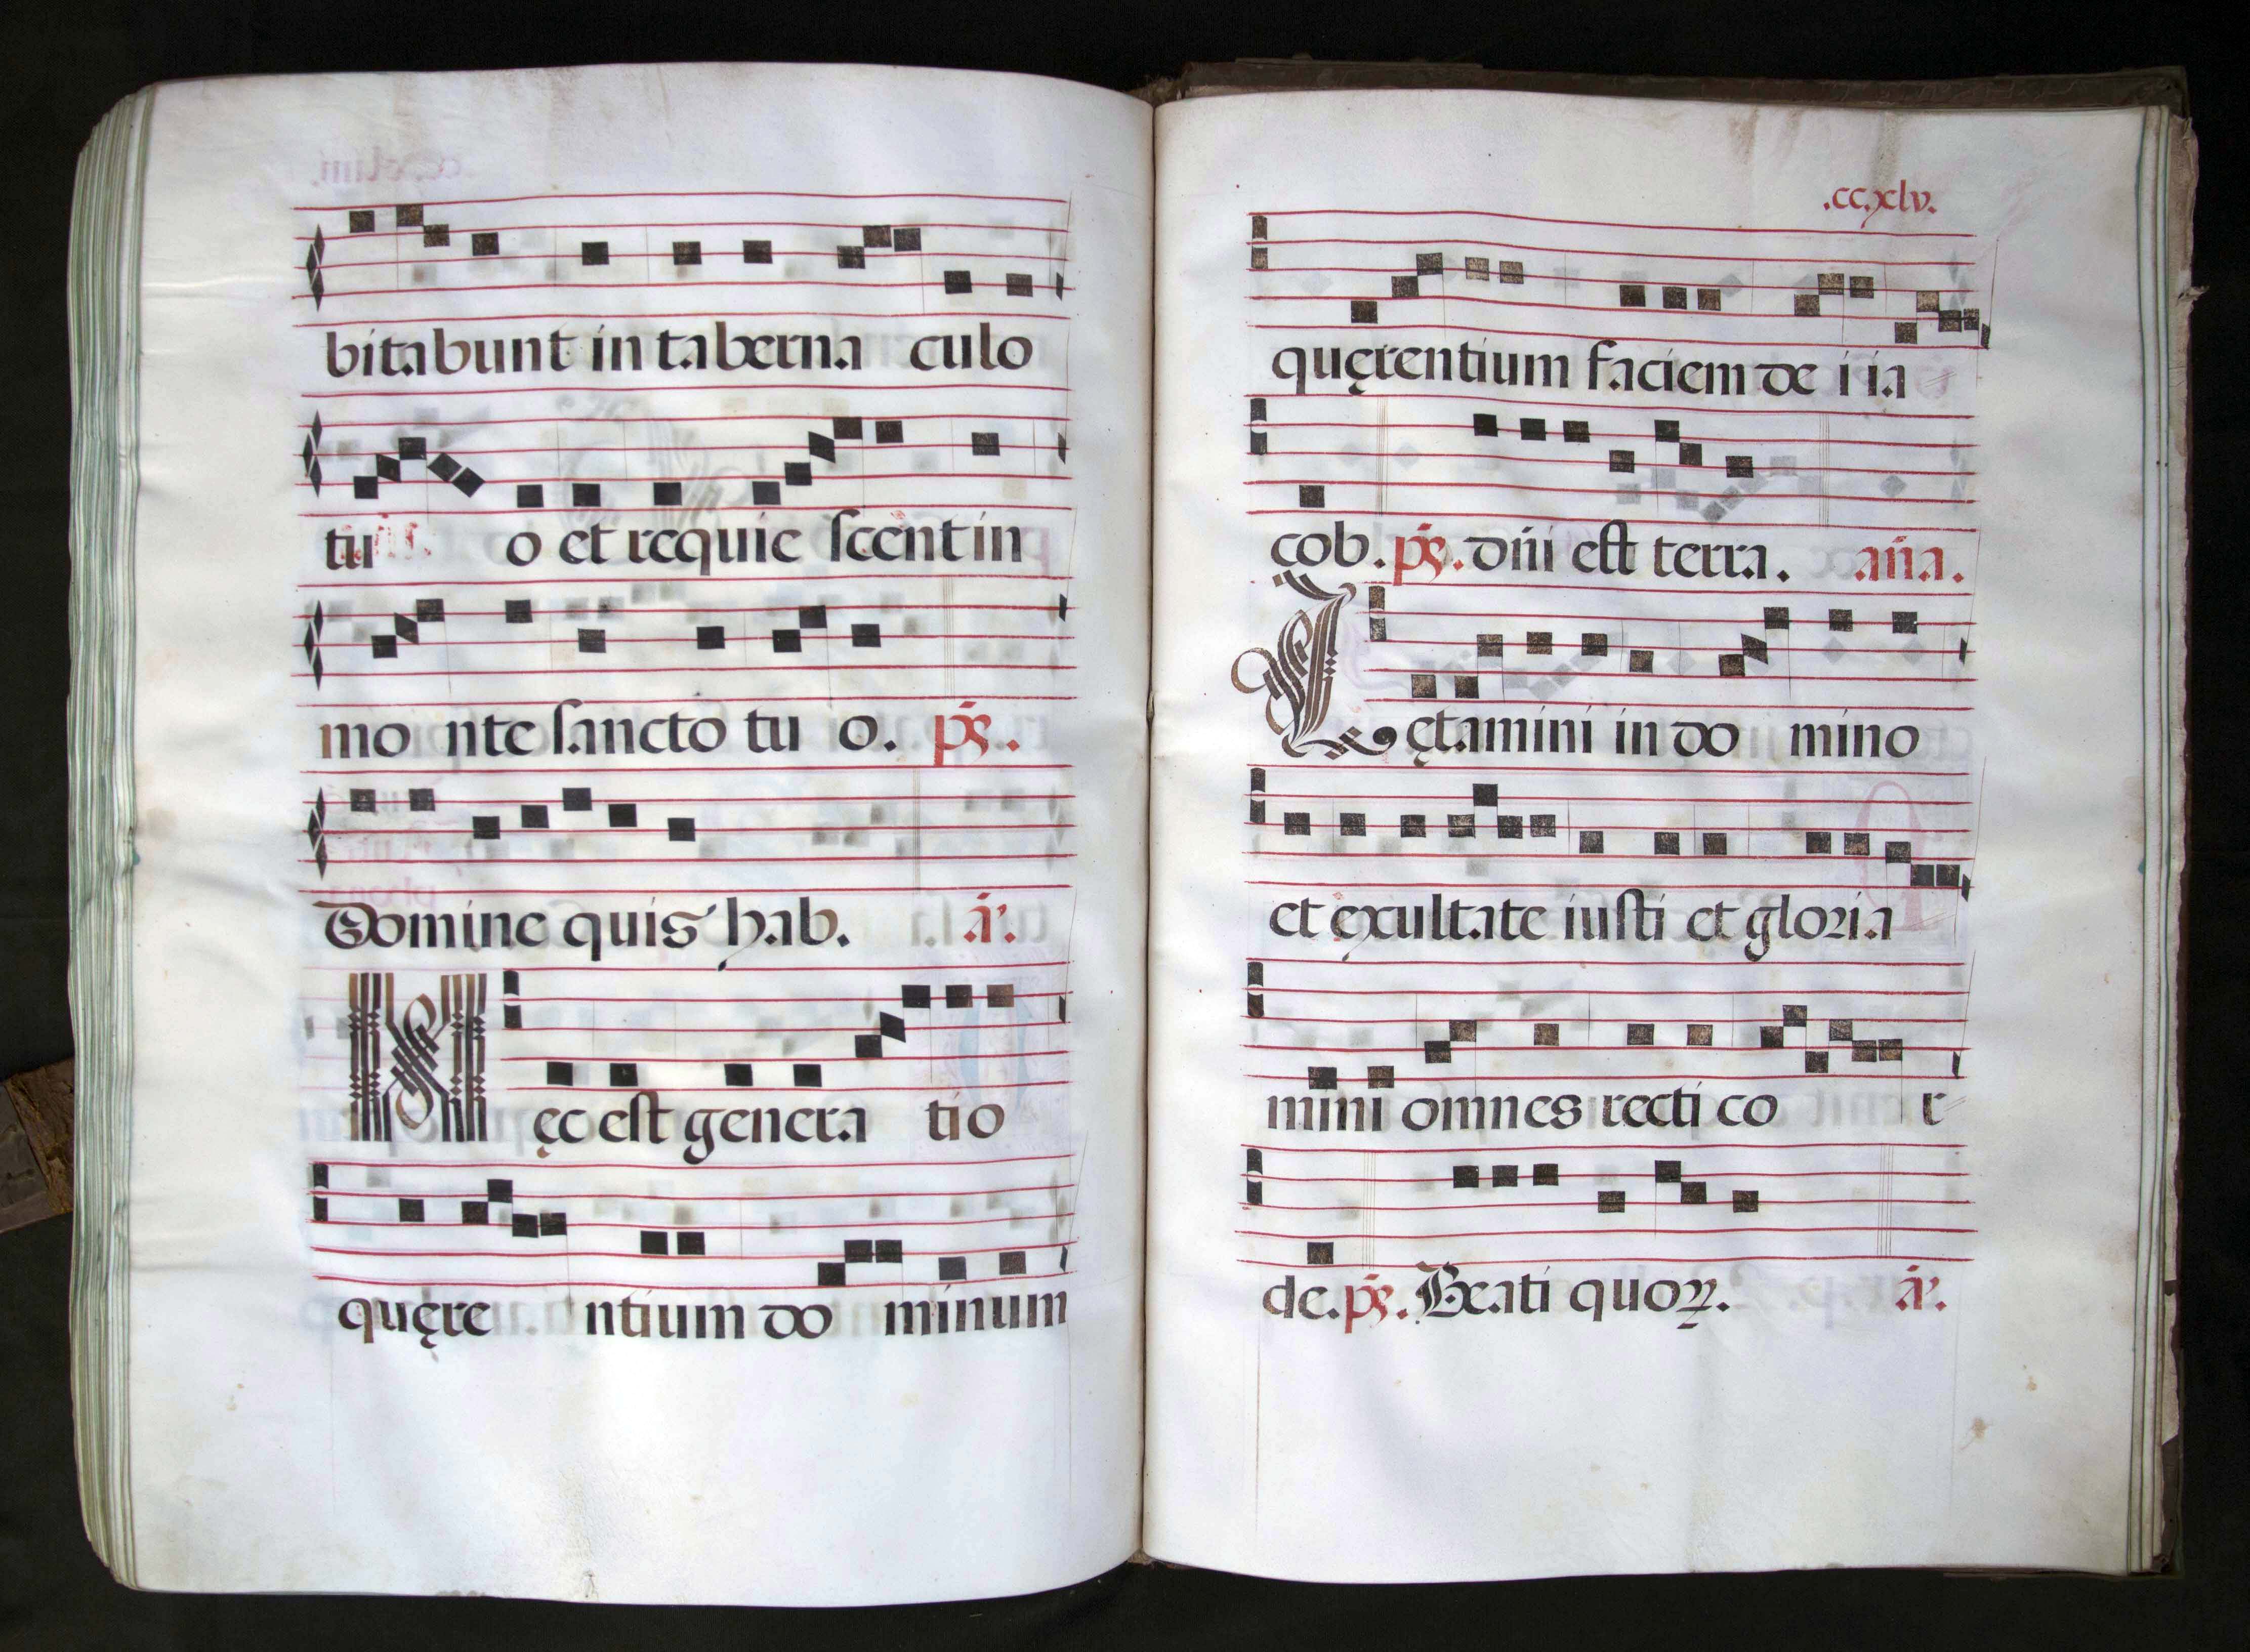 bitabunt in taberna culo
tu o et requie scent in
mo nte sancto tu o. ps.
Domine quis hab. a.
Hęc est genera tio
quęre ntium do minum
.ccxlv.
quęrentium faciem de i ia
cob. ps. dñi est terra. aña.
Lętamini in do mino
et exultate iusti et gloria
mini omnes recti co r
de. ps. Beati quoꝝ. a.